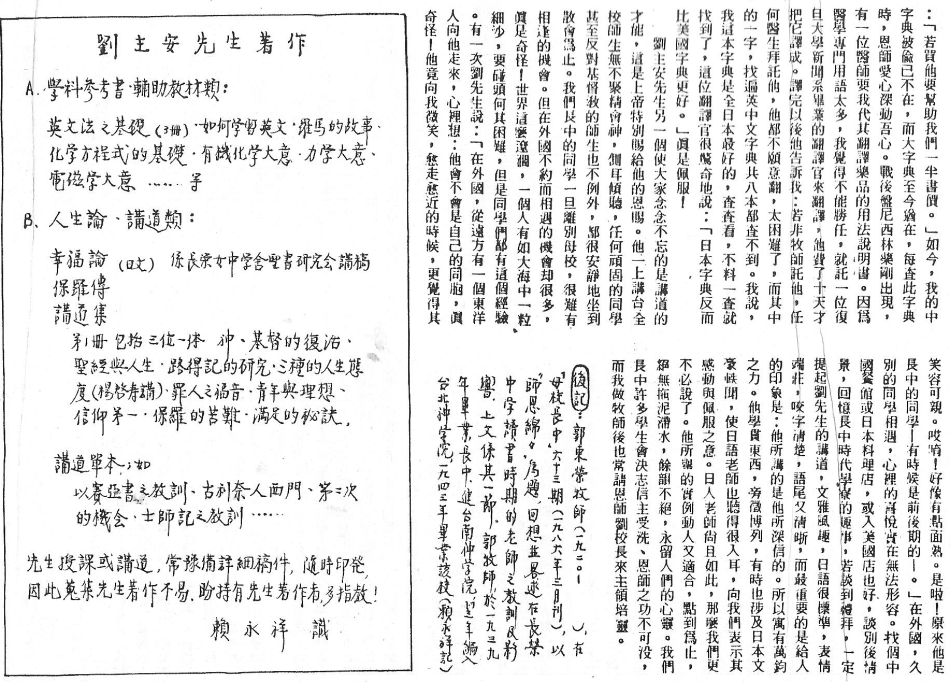 :「若賀他要助我們一半書價。」如今,我的中
字典被偷已不在,而大字典至今猶在,每查此字典
時,恩師愛心深動吾心。戰後盤尼西林藥剛出現,
有一位醫師要我代其翻譯藥品的用法說明書。因爲
醫學專門用語太多,我覺得不能勝任,就託一位復
旦大學新聞系畢業的翻譯官來翻譯,他費了十天才
把它譯成。譯完以後他告訴我:若非牧師託他,任
何醫生拜託他,他都不願意翻,太困難了,而其中
的一字,找遍英中文字典共八本都查不到。我說,
我這本字典是全日本最好的,查查看,不料一查就
找到了,這位翻譯官很驚奇地說:「日本字典反而
比美國字典更好。」眞是佩服!
劉主安先生另一個使大家念念不忘的是講道的
才能,這是上帝特別賜給他的恩賜。他一上講台全
校師生無不聚精會神,側耳傾聽,任何頑固的同學
甚至反對基督教的師生也不例外,都很安靜地坐到
散會爲止。我們長中的同學一旦離別母校,很難有
相逢的機會。但在外國不約而相遇的機會却很多,
眞是奇怪!世界這麼遼濶,一個人有如大海中一粒
細沙,要碰頭何其困難,但是同學們都有這個經驗
。有一次劉先生說:「在外國,從遠方有一個東洋
人向他走來,心裡想:他會不會是自己的同胞,眞
奇怪!他竟向我微笑,愈走愈近的時候,更覺得其
笑容可親。哎唷!好像有點面熟。是啦!原來他是
長中的同學!有時候是前後期的!。」在外國,久
別的同學相遇,心裡的喜悅實在無法形容。找個中
國餐館或日本料理店,或入美國店也好,談別後情
景,回憶長中時代學寮的趣事,若談到禮拜,一定
提起劉先生的講道,文雅風趣,日語很標準,表情
端莊,咬字清楚,語尾又清晰,而最重要的是給人
的印象是:他所講的是他所深信的。所以寓有萬鈞
之力。他學貫東西,旁徵博列,有時也涉及日本文
豪軼聞,使日語老師也聽得很入耳,向我們表示其
感動與佩服之意。日人老師尙且如此,那麼我們更
不必說了。他所舉的實例動人又適合,點到爲止,
絕無拖泥滯水,餘韻不絕,永留人們的心靈。我們
長中許多學生會決志信主受洗、恩師之功不可沒,
而我做牧師後也常請恩師劉校長來主領培靈。
後記:郭東榮牧師(一九二〇— ),在
"母校長中"六十三期(一九八六年三月刊),以
"師恩綿々"爲題,回想並展述在長榮
中学讀書時期的老師之教訓及影
響。上文係其一節。郭牧師於一九三九
年畢業長中,進台南神学院,翌年編入
台北神学院,一九四三年畢業該校(賴永祥記)
劉主安先生著作
A. 學科參考書·輔助教材類:
英文法之基礎(3冊)·如何學習英文·羅馬的故事、
化学方程式的基礎·有機化学大意·力学大意、
電磁学大意 …… 等
B. 人生論、講道類:
幸福論(日文) 係長榮女中学舍聖書研究会講稿
保羅傳
講道集
第1冊 包括三位一体 神、基督的復活、
聖經與人生·路得記的研究·三種的人生態
度(楊啓寿講)·罪人之福音·青年與理想、
信仰第一·保羅的苦難·滿足的秘訣.
講道單本;如
以賽亞書之教訓、古利奈人西門、第二次
的機会、士師記之教訓 ……
先生授課或講道,常預備詳細稿件,隨時印發,
因此蒐集先生著作不易,盼持有先生著作者多指教!
賴永祥 識